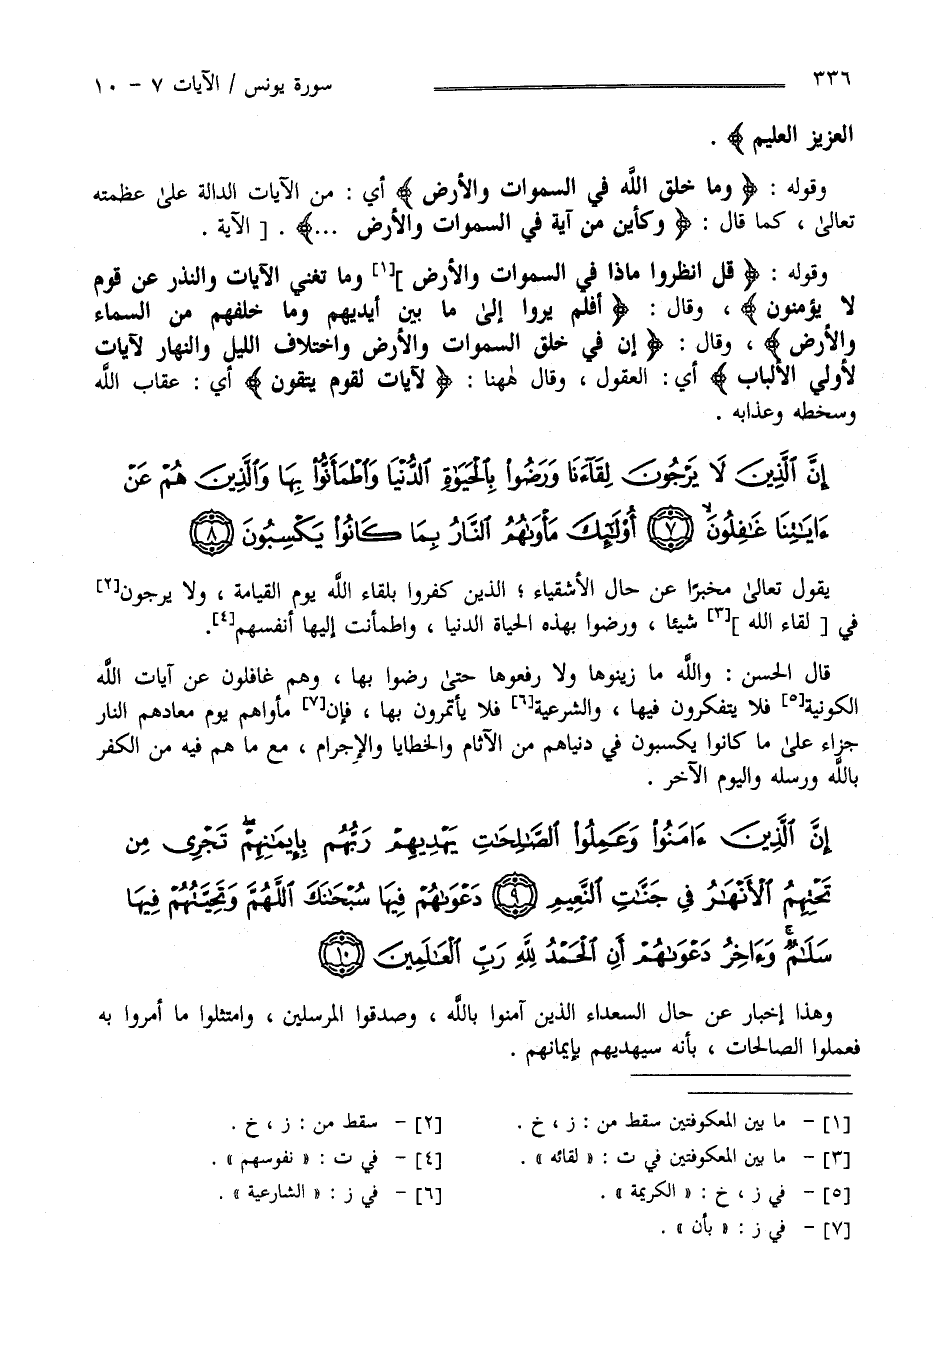 ٣٣٦ سورة يونس / الآيات ٧ - ١٠
العزيز العليم ﴾ .
وقوله : ﴿ وما خلق اللَّه في السموات والأرض ﴾ أي : من الآيات الدالة على عظمته
تعالىٰ ، كما قال : ﴿ وكأين من آية في السموات والأرض ...﴾ . [ الآية .
وقوله : ﴿ قل انظروا ماذا في السموات والأرض ][١] وما تغني الآيات والنذر عن قوم
لا يؤمنون ﴾ ، وقال : ﴿ أفلم يروا إلىٰ ما بين أيديهم وما خلفهم من السماء
والأرض ﴾ ، وقال : ﴿ إن في خلق السموات والأرض واختلاف الليل والنهار لآيات
لأولي الألباب ﴾ أي : العقول ، وقال هٰهنا : ﴿ لآيات لقوم يتقون ﴾ أي : عقاب اللَّه
وسخطه وعذابه .
إِنَّ ٱلَّذِينَ لَا يَرْجُونَ لِقَآءَنَا وَرَضُوا۟ بِٱلْحَيَوٰةِ ٱلدُّنْيَا وَٱطْمَأَنُّوا۟ بِهَا وَٱلَّذِينَ هُمْ عَنْ
ءَايَٰتِنَا غَٰفِلُونَۙ ﴿٧﴾ أُو۟لَٰٓئِكَ مَأْوَىٰهُمُ ٱلنَّارُ بِمَا كَانُوا۟ يَكْسِبُونَ ﴿٨﴾
يقول تعالىٰ مخبرًا عن حال الأشقياء ؛ الذين كفروا بلقاء اللَّه يوم القيامة ، ولا يرجون[٢]
في [ لقاء الله ][٣] شيئا ، ورضوا بهذه الحياة الدنيا ، واطمأنت إليها أنفسهم[٤].
قال الحسن : واللَّه ما زينوها ولا رفعوها حتىٰ رضوا بها ، وهم غافلون عن آيات اللَّه
الكونية[٥] فلا يتفكرون فيها ، والشرعية[٦] فلا يأتمرون بها ، فإن[٧] مأواهم يوم معادهم النار
جزاء علىٰ ما كانوا يكسبون في دنياهم من الآثام والخطايا والإجرام ، مع ما هم فيه من الكفر
باللَّه ورسله واليوم الآخر .
إِنَّ ٱلَّذِينَ ءَامَنُوا۟ وَعَمِلُوا۟ ٱلصَّٰلِحَٰتِ يَهْدِيهِمْ رَبُّهُم بِإِيمَٰنِهِمْۖ تَجْرِى مِن
تَحْتِهِمُ ٱلْأَنْهَٰرُ فِى جَنَّٰتِ ٱلنَّعِيمِ ﴿٩﴾ دَعْوَىٰهُمْ فِيهَا سُبْحَٰنَكَ ٱللَّهُمَّ وَتَحِيَّتُهُمْ فِيهَا
سَلَٰمٌۚ وَءَاخِرُ دَعْوَىٰهُمْ أَنِ ٱلْحَمْدُ لِلَّهِ رَبِّ ٱلْعَٰلَمِينَ ﴿١٠﴾
وهذا إخبار عن حال السعداء الذين آمنوا باللَّه ، وصدقوا المرسلين ، وامتثلوا ما أمروا به
فعملوا الصالحات ، بأنه سيهديهم بإيمانهم .
[١] - ما بين المعكوفتين سقط من : ز ، خ . [٢] - سقط من : ز ، خ .
[٣] - ما بين المعكوفتين في ت : « لقائه » . [٤] - في ت : « نفوسهم » .
[٥] - في ز ، خ : « الكريمة » . [٦] - في ز : « الشارعية » .
[٧] - في ز : « بأن » .